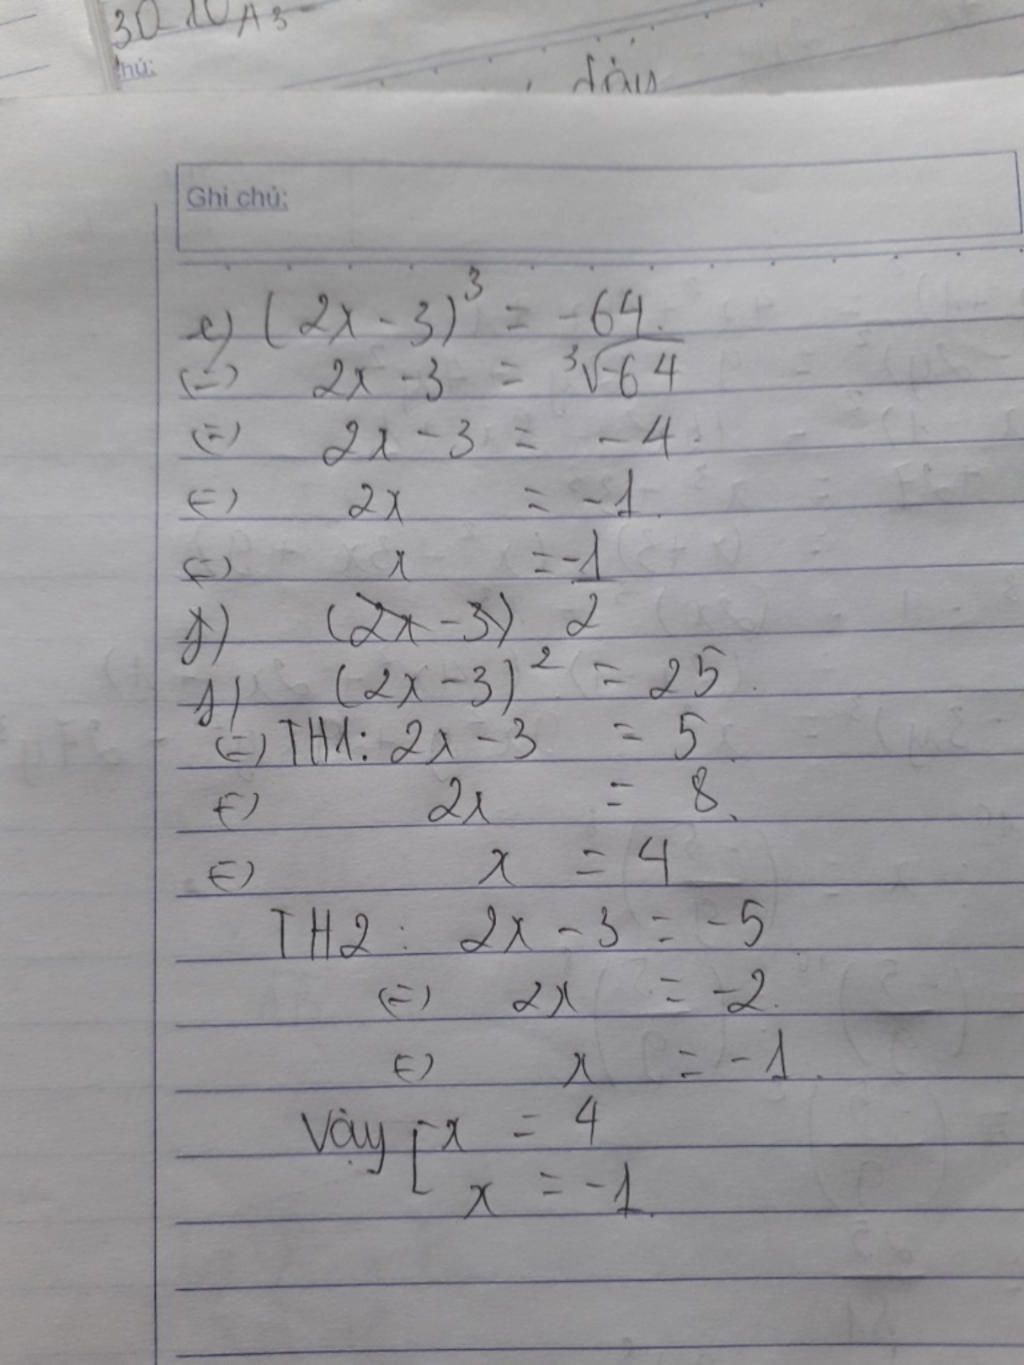 30 10 A3
hú:
đây
Ghi chú:
e) (2x - 3)³ = -64.
(=) 2x - 3 = ³√-64
(=) 2x - 3 = -4
(=) 2x = -1.
(=) x = -1
f) (2x - 3) 2
f) (2x - 3)² = 25.
(=) TH1: 2x - 3 = 5
(=) 2x = 8.
(=) x = 4
TH2: 2x - 3 = -5
(=) 2x = -2.
(=) x = -1.
Vậy [x = 4
x = -1.